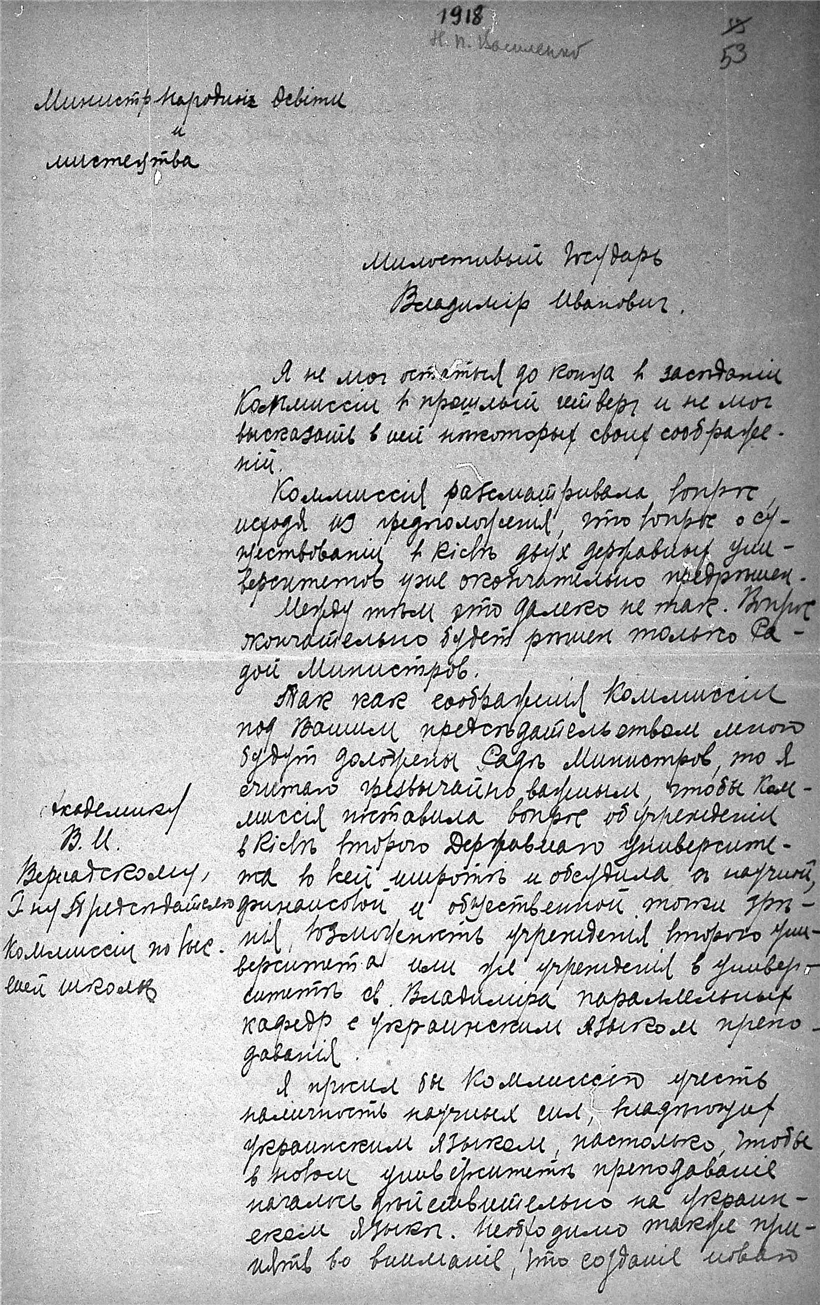 1918
Н. П. Василенко
53
Министр народнiе освiти
и
мистецтва
Милостивый Государь
Владимiр Иванович.
Я не мог остаться до конца в засѣданiи
Коммиссiи в прошлый четверг и не мог
высказать в ней нѣкоторых своих соображе-
нiй.
Коммиссiя разсматривала вопрос,
исходя из предположенiя, что вопрос о су-
ществованiи в Кiевѣ двух державных уни-
верситетов уже окончательно предрѣшен.
Между тѣм это далеко не так. Вопрос
окончательно будет рѣшен только Ра-
дой Министров.
Так как соображенiя Коммиссiи
под Вашим предсѣдательством мною
будут доложены Радѣ Министров, то я
считаю чрезвычайно важным, чтобы Ком-
миссiя поставила вопрос об учрежденiи
в Кiевѣ второго Державнаго университе-
та во всей широтѣ и обсудила с научной,
финансовой и общественной точки зрѣ-
нiя, возможность учрежденiя второго уни-
верситета или же учрежденiя в универ-
ситетѣ св. Владимiра параллельных
кафедр с украинским языком препо-
даванiя.
Я просил бы Коммиссiю учесть
наличность научных сил, владѣющих
украинским языком, настолько, чтобы
в новом университетѣ преподаванiе
началось дѣйствительно на украин-
ском языкѣ. Необходимо также при-
нять во вниманiе, что созданiе новаго
Академику
В. И.
Вернадскому,
Г-ну Предсѣдателю
Коммиссiи по выс-
шей школѣ